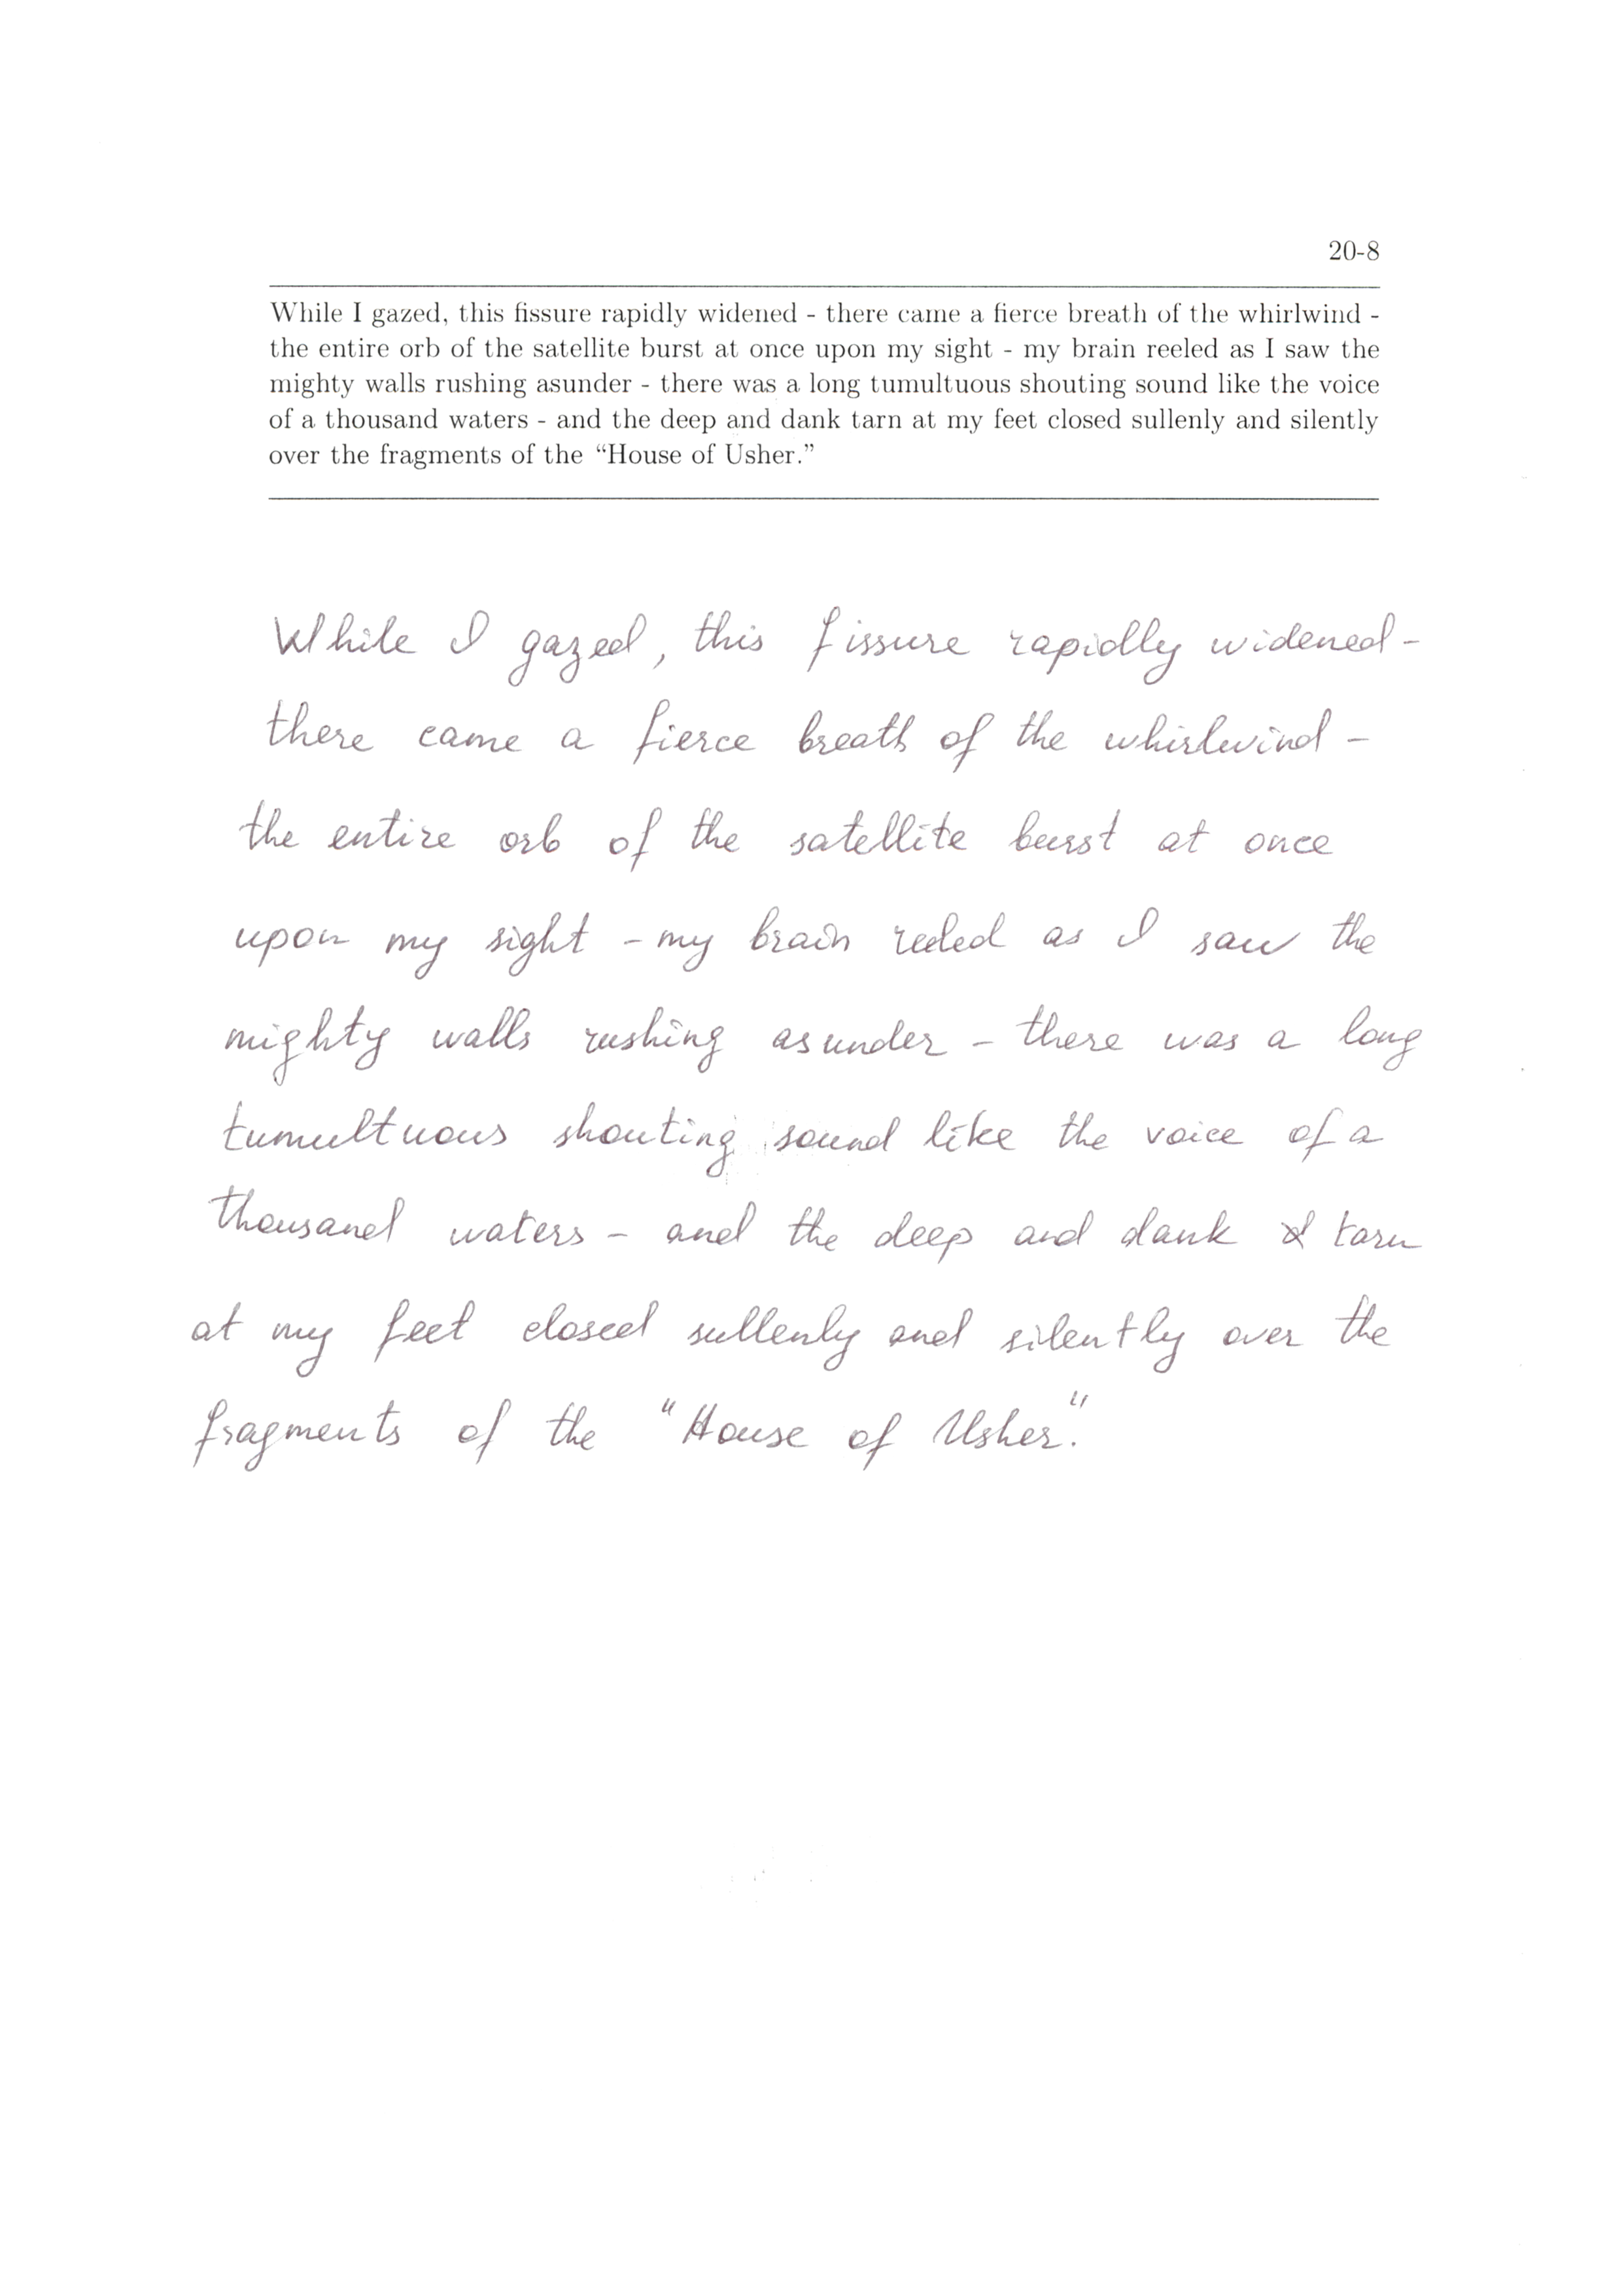 20-8
While I gazed, this fissure rapidly widened - there came a fierce breath of the whirlwind -
the entire orb of the satellite burst at once upon my sight - my brain reeled as I saw the
mighty walls rushing asunder - there was a long tumultuous shouting sound like the voice
of a thousand waters - and the deep and dank tarn at my feet closed sullenly and silently
over the fragments of the “House of Usher.”
While I gazed, this fissure rapidly widened -
there came a fierce breath of the whirlwind -
the entire orb of the satellite burst at once
upon my sight - my brain reeled as I saw the
mighty walls rushing asunder - there was a long
tumultuous shouting sound like the voice of a
thousand waters - and the deep and dank tarn
at my feet closed sullenly and silently over the
fragments of the "House of Usher."